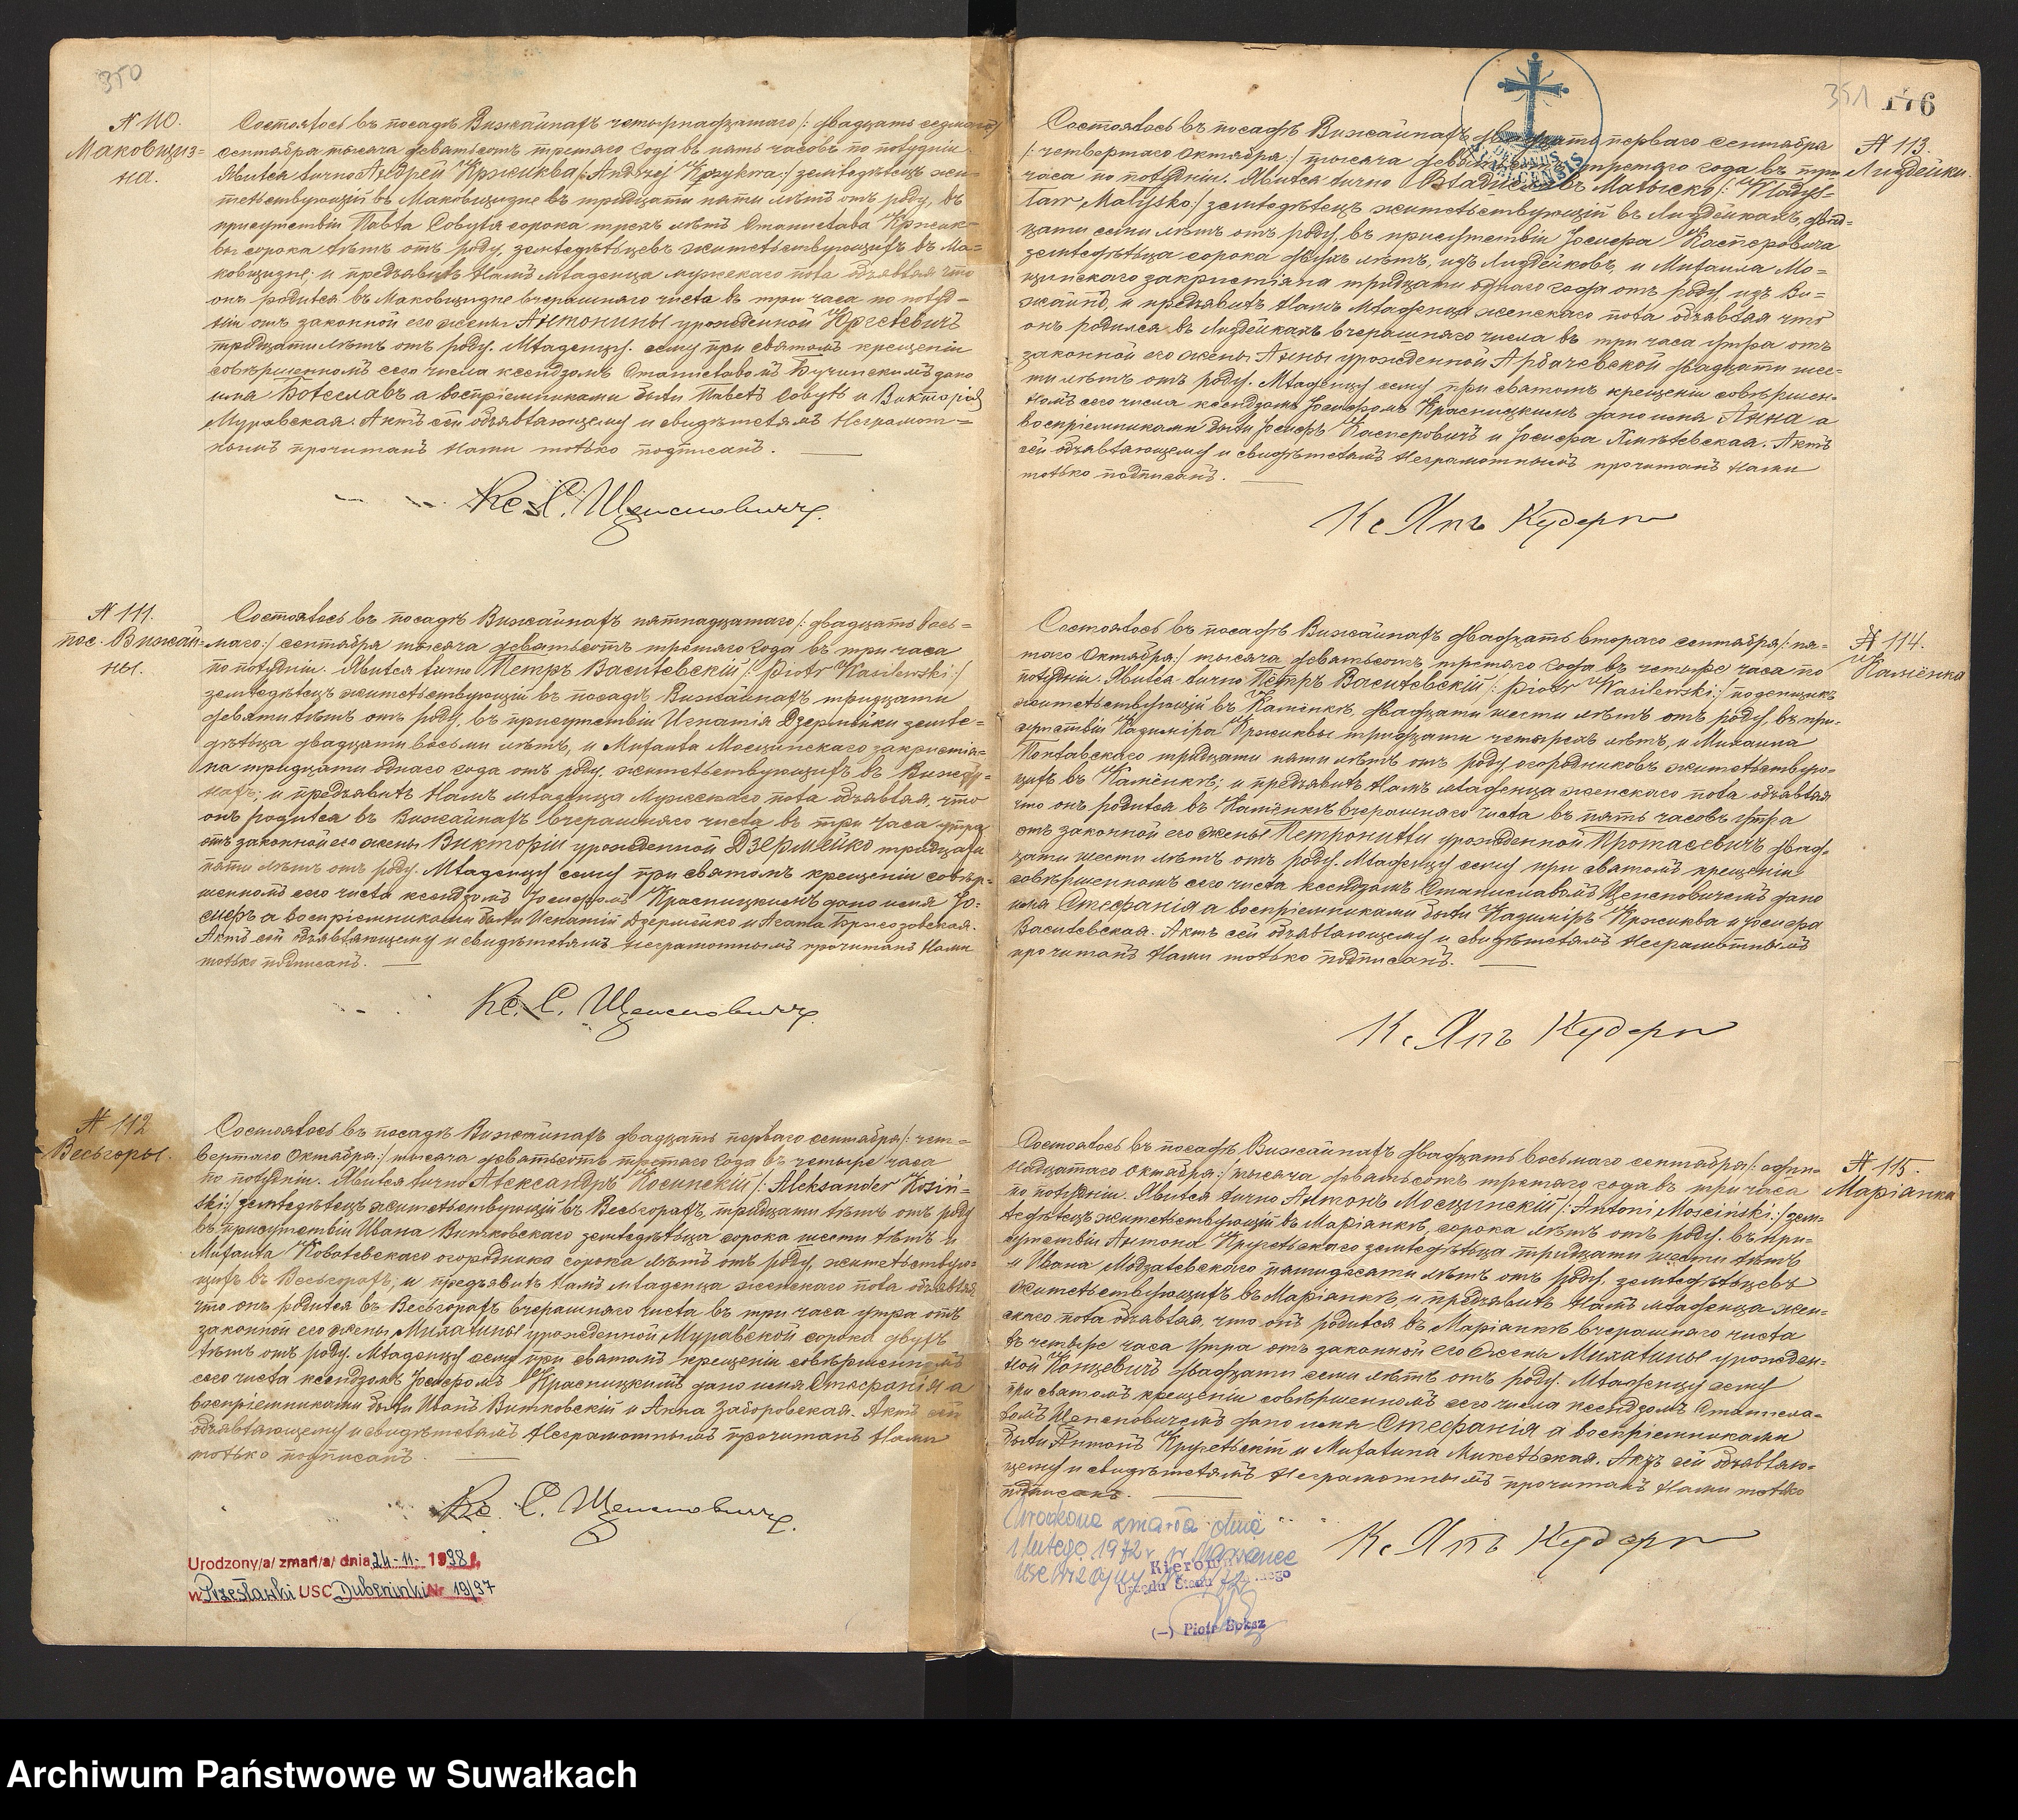 350
N 110.
Маковщиз=
на.
Состоялось въ посадѣ Вижайнахъ четырнадцатаго /: двадцать седьмаго :/
сентября тысяча девятьсотъ третяго года въ пять часовъ по полудни.
Явился лично Андрей Кржиква /: Andrzej Krzykwa :/ земледѣлецъ жи=
тельствующій въ Маковщизне въ тридцати пяти лѣтъ отъ роду, въ
присутствіи Павла Собуля сорока трехъ лѣтъ Станислава Кржик=
вы сорока лѣтъ отъ роду, земледѣльцевъ жительствующихъ въ Ма=
ковщизне; и предъявилъ Намъ младенца мужескаго пола объявляя что
онъ родился въ Маковщизне вчерашняго числа въ три часа по полуд=
ніи отъ законной его жены Антонины урожденной Юргелевичъ
тридцати лѣтъ отъ роду. Младенцу сему при святомъ крещеніи
совершенномъ сего числа ксендзомъ Станиславомъ Бучинскимъ дано
имя Болеславъ а воспріемниками были Павелъ Собуль и Викторія
Муравская. Актъ сей объявляющему и свидѣтелямъ Неграмот=
нымъ прочитанъ Нами только подписанъ.
Кс. С. Щенсновичъ.
N 111.
пос. Вижай=
ны.
Состоялось въ посадѣ Вижайнахъ пятнадцатаго /: двадцать вось=
маго :/ сентября тысяча девятьсотъ третяго года въ три часа
по полудни. Явился лично Петръ Василевскій /: Piotr Wasilewski :/
земледѣлецъ жительствующій въ посадѣ Вижайнахъ тридцати
девяти лѣтъ отъ роду, въ присутствіи Игнатія Дзермейки земле=
дѣльца двадцати восьми лѣтъ, и Михаила Мосцинскаго закристія=
на тридцати однаго года отъ роду, жительствующихъ въ Вижай=
нахъ; и предъявилъ Намъ младенца Мужескаго пола объявляя, что
онъ родился въ Вижайнахъ вчерашняго числа въ три часа утра
отъ законной его жены Викторіи урожденной Дзермейко тридцати
пяти лѣтъ отъ роду. Младенцу сему при святомъ крещеніи совер=
шенномъ сего числа ксендзомъ Іосифомъ Красницкимъ дано имя Іо=
сифъ а воспріемниками были Игнатій Дзермейко и Агата Бржозовская.
Актъ сей объявляющему и свидѣтелямъ неграмотнымъ прочитанъ Нами
только подписанъ.
Кс. С. Щенсновичъ.
N 112
Весьгоры.
Состоялось въ посадѣ Вижайнахъ двадцать перваго сентября /: чет=
вертаго Октября :/ тысяча девятьсотъ третяго года въ четыре часа
по полудни. Явился лично Александръ Косинскій /: Aleksander Kosiń=
ski :/ земледѣлецъ жительствующій въ Весьгорахъ, тридцати лѣтъ отъ роду
въ присутствіи Ивана Витковскаго земледѣльца сорока шести лѣтъ и
Михаила Ковалевскаго огородника сорока лѣтъ отъ роду, жительствую=
щихъ въ Весьгорахъ, и предъявилъ Намъ младенца женскаго пола объявляя
что онъ родился въ Весьгорахъ вчерашняго числа въ три часа утра отъ
законной его жены Михалины урожденной Муравской сорока двухъ
лѣтъ отъ роду. Младенцу сему при святомъ крещеніи совершенномъ
сего числа ксендзомъ Іосифомъ Красницкимъ дано имя Стефанія а
воспріемниками были Иванъ Витковскій и Анна Заборовская. Актъ сей
объявляющему и свидѣтелямъ Неграмотнымъ прочитанъ Нами
только подписанъ.
Кс. С. Щенсновичъ.
Urodzony/a/ zmarł/a/ dnia 24-11- 1938 r.
w Przesławki USC Dubeninki Nr 19/97
351 176
N 113.
Лиздейки.
Состоялось въ посадѣ Вижайнахъ двадцать перваго сентября
/: четвертаго Октября :/ тысяча девятьсотъ третяго года въ три
часа по полудни. Явился лично Владиславъ Малыско /: Władys=
ław Małysko :/ земледѣлецъ жительствующій въ Лиздейкахъ, двад=
цати семи лѣтъ отъ роду, въ присутствіи Іосифа Касперовича
земледѣльца сорока двухъ лѣтъ, изъ Лиздейковъ, и Михаила Мо=
сцинскаго закристіяна тридцати однаго года отъ роду, изъ Ви=
жайнъ, и предъявилъ Намъ Младенца женскаго пола объявляя что
онъ родился въ Лиздейкахъ вчерашняго числа въ три часа утра отъ
законной его жены Анны урожденной Арбачевской двадцати шес=
ти лѣтъ отъ роду. Младенцу сему при святомъ крещеніи совершен=
номъ сего числа ксендзомъ Іосифомъ Красницкимъ дано имя Анна а
воспріемниками были Іосифъ Касперовичъ и Іосифа Хмѣлевская. Актъ
сей объявляющему и свидѣтелямъ Неграмотнымъ прочитанъ Нами
только подписанъ.
Кс Янъ Кудерк
N 114.
Каменка
Состоялось въ посадѣ Вижайнахъ двадцать втораго сентября /: пя=
таго Октября :/ тысяча девятьсотъ третяго года въ четыре часа по
полудни. Явился лично Петръ Василевскій /: Piotr Wasilewski :/ поденщикъ
жительствующій въ Каменкѣ, двадцати шести лѣтъ отъ роду, въ при=
сутствіи Казиміра Кржиквы тридцати четырехъ лѣтъ, и Михаила
тридцати пяти лѣтъ отъ роду огородниковъ жительствую=
щихъ въ Каменкѣ; и предъявилъ Намъ младенца женскаго пола объявляя
что онъ родился въ Каменкѣ вчерашняго числа въ пять часовъ утра
отъ законной его жены Петронили урожденной Протасевичъ двад=
цати шести лѣтъ отъ роду. Младенцу сему при святомъ крещеніи
совершенномъ сего числа ксендзомъ Станиславомъ Щенсновичемъ дано
имя Стефанія а воспріемниками были Казиміръ Кржиква и Іосифа
Василевская. Актъ сей объявляющему и свидѣтелямъ Неграмотнымъ
прочитанъ Нами только подписанъ.
Кс Янъ Кудерк
N 115.
Маріанка
Состоялось въ посадѣ Вижайнахъ двадцать восьмаго сентября /: один=
надцатаго Октября :/ тысяча девятьсотъ третяго года въ три часа
по полудни. Явился лично Антонъ Мосцинскій /: Antoni Mosciński :/ зем=
ледѣлецъ жительствующій въ Маріанкѣ, сорока лѣтъ отъ роду, въ при=
сутствіи Антона земледѣльца тридцати шести лѣтъ
и Ивана Модзелевскаго пятидесяти лѣтъ отъ роду, земледѣльцевъ
жительствующихъ въ Маріанкѣ, и предъявилъ Намъ младенца жен=
скаго пола объявляя, что онъ родился въ Маріанкѣ вчерашняго числа
въ четыре часа утра отъ законной его жены Михалины урожден=
ной Концевичъ двадцати семи лѣтъ отъ роду. Младенцу сему
при святомъ крещеніи совершенномъ сего числа ксендзомъ Станисла=
вомъ Щенсновичемъ дано имя Стефанія а воспріемниками
были Антонъ и Михалина Актъ сей объявляю=
щему и свидѣтелямъ Неграмотнымъ прочитанъ Нами только
подписанъ.
Кс Янъ Кудерк
Urodzona zmarła dnia
1 lutego 1972 r. w
USC
Kierownik
Urzędu Stanu Cywilnego
(—) Piotr Soksz
Archiwum Państwowe w Suwałkach